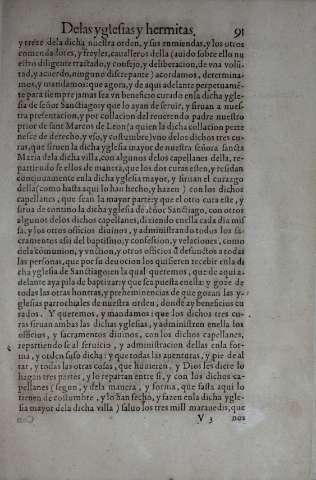 Delas yglesias y hermitas. 91
y treze dela dicha nuestra orden, y sus enmiendas, y los otros
comendadores, y freyles, caualleros della (auido sobre ello nu
estro diligente tractado, y consejo, y deliberacion, de vna volũ
tad, y acuerdo, ninguno discrepante) acordamos, determina-
mos, y mandamos: que agora, y de aqui adelante perpetuamẽ-
te para siempre jamas sea vn beneficio curado enla dicha ygle-
sia de señor Sanctiago: y que lo ayan de seruir, y siruan a nues-
tra presentacion, y por collacion del reuerendo padre nuestro
prior de sant Marcos de Leon (a quien la dicha collacion perte
nesce de derecho, y vso, y costumbre) vno delos dichos tres cu-
ras, que siruen la dicha yglesia mayor de nuestra señora sancta
Maria dela dicha villa, con algunos delos capellanes della, re-
partiendose ellos de manera, que los dos curas esten, y residan
continuamente enla dicha yglesia mayor, y siruan el curazgo
della (como hasta aqui lo han hecho, y hazen) con los dichos
capellanes, que sean la mayor parte: y que el otro cura este, y
sirua de contino la dicha yglesia de señor Sanctiago, con otros
algunos delos dichos capellanes, diziendo enella cada dia mis
sa, y los otros officios diuinos, y administrando todos los sa-
cramentos assi del baptismo, y confession, y velaciones, como
dela comunion, y vnction, y otros officios de defunctos a todas
las personas, que por su deuocion los quisieren recebir enla di
cha yglesia de Sanctiago: en la qual queremos, que de aqui a-
delante aya pila de baptizar: y que sea puesta enella: y goze de
todas las otras honrras, y preheminencias de que gozan las y-
glesias parrochiales de nuestra orden, donde ay beneficios cu
rados. Y queremos, y mandamos: que los dichos tres cu-
ras siruan ambas las dichas yglesias, y administren enella los
officios, y sacramentos diuinos, con los dichos capellanes,
repartiendose al seruicio, y administracion dellas enla for-
ma, y orden suso dicha: y que todas las auenturas, y pie de al
tar, y todas las otras cosas, que huuieren, y Dios les diere lo
hagan tres partes, y lo repartan entre si, y con los dichos ca-
pellanes (segun, y dela manera, y forma, que fasta aqui lo
tienen de costumbre, y lo han fecho, y fazen enla dicha ygle-
sia mayor dela dicha villa) saluo los tres mill marauedis, que
V 3 nos